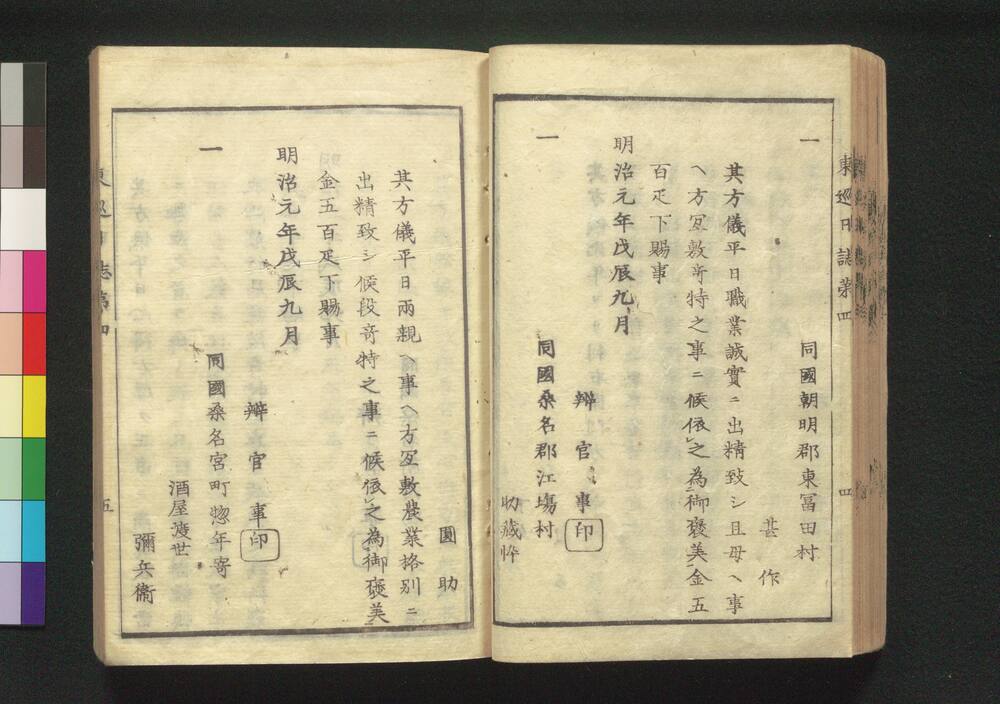 東巡日誌第四
四
一
同國朝明郡東冨田村
甚作
其方儀平日職業誠實ニ出精致シ且母ヘ事
ヘ方冝敷竒特之事ニ候依之為御褒美金五
百疋下賜事
明治元年戊辰九月
辨官事
印
一
同國桑名郡江塲村
助藏忰
圓助
其方儀平日兩親ヘ事ヘ方冝敷農業格別ニ
出精致シ候段竒特之事ニ候依之為御褒美
金五百疋下賜事
明治元年戊辰九月
辨官事
印
一
同國桑名宮町惣年寄
酒屋渡世
彌兵衞
東巡日誌第四
五